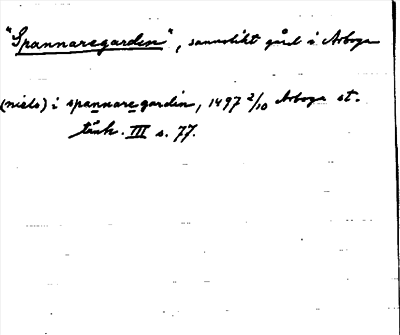 "Spannaregarden", sannolikt gård i Arboga
(niels) i spannare gardin, 1497 2/10 Arboga st.
tänk. III s. 77.